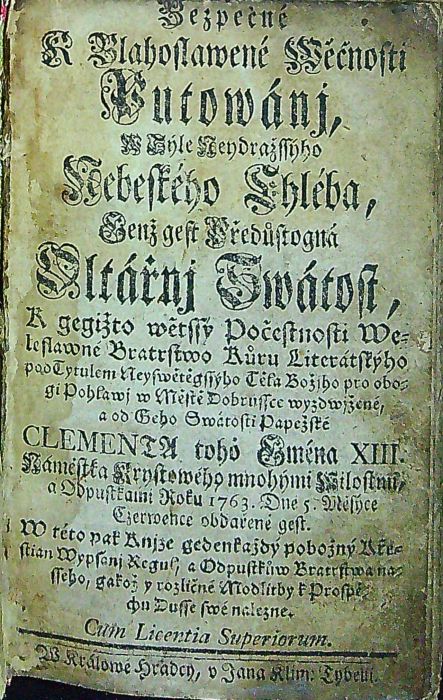 Bezpečné
K Blahoslawené Wěčnosti
Putowánj,
W Sýle Neydražssýho
Nebeského Chléba,
Genž gest Předůstogná
Oltářnj Swátost,
K gegižto wětssý Počestnosti We-
leslawné Bratrstwo Kůru Literátského
pod Tytulem Neyswětěgssýho Těla Božjho pro obo-
gj Pohlawj w Městě Dobrussce wyzdwjžené,
a od Geho Swátosti Papežské
CLEMENTA toho Gména XIII.
Náměstka Krystowého mnohými Milostmi,
a Odpustkami Roku 1763. Dne 5. Měsýce
Czerwence obdařené gest.
W této pak Knjze gedenkaždý pobožný Kře-
stian Wypsanj Regulj, a Odpustkůw Bratrstwa na-
sseho, gakož y rozličné Modlitby k Prospě-
chu Dusse swé nalezne.
Cum Licentia Superiorum.
W Králowé Hradcy, v Jana Klim: Tybeli.